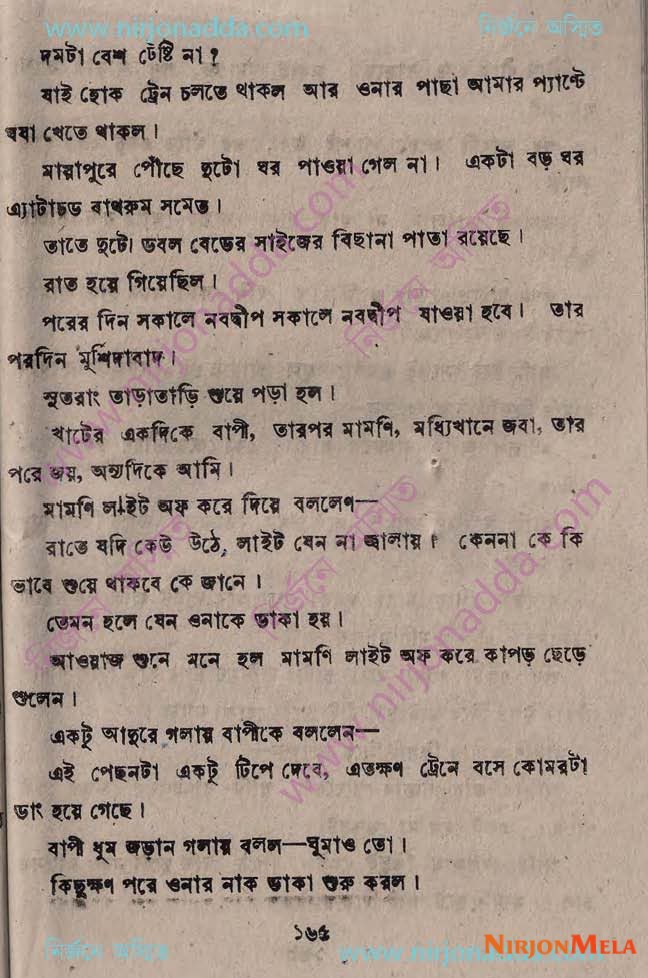 www.nirjonadda.com নির্জনে অস্মিত
দমটা বেশ টেষ্টি না?
যাই হোক ট্রেন চলতে থাকল আর ওনার পাছা আমার প্যান্টে
ঘষা খেতে থাকল।
মায়াপুরে পৌঁছে দুটো ঘর পাওয়া গেল না। একটা বড় ঘর
এ্যাটাচড বাথরুম সমেত।
তাতে দুটো ডবল বেডের সাইজের বিছানা পাতা রয়েছে।
রাত হয়ে গিয়েছিল।
পরের দিন সকালে নবদ্বীপ সকালে নবদ্বীপ যাওয়া হবে। তার
পরদিন মুর্শিদাবাদ।
সুতরাং তাড়াতাড়ি শুয়ে পড়া হল।
খাটের একদিকে বাপী, তারপর মামণি, মধ্যিখানে জবা, তার
পরে জয়, অন্যদিকে আমি।
মামণি লাইট অফ করে দিয়ে বললেণ—
রাতে যদি কেউ উঠে, লাইট যেন না জ্বালায়। কেননা কে কি
ভাবে শুয়ে থাকবে কে জানে।
তেমন হলে যেন ওনাকে ডাকা হয়।
আওয়াজ শুনে মনে হল মামণি লাইট অফ করে কাপড় ছেড়ে
শুলেন।
একটু আদুরে গলায় বাপীকে বললেন—
এই পেছনটা একটু টিপে দেবে, এতক্ষণ ট্রেনে বসে কোমরটা
ডাং হয়ে গেছে।
বাপী ধুম জড়ান গলায় বলল—ঘুমাও তো।
কিছুক্ষণ পরে ওনার নাক ডাকা শুরু করল।
১৬৫
নির্জনে অস্মিত www.nirjonadda.com
NIRJONMELA